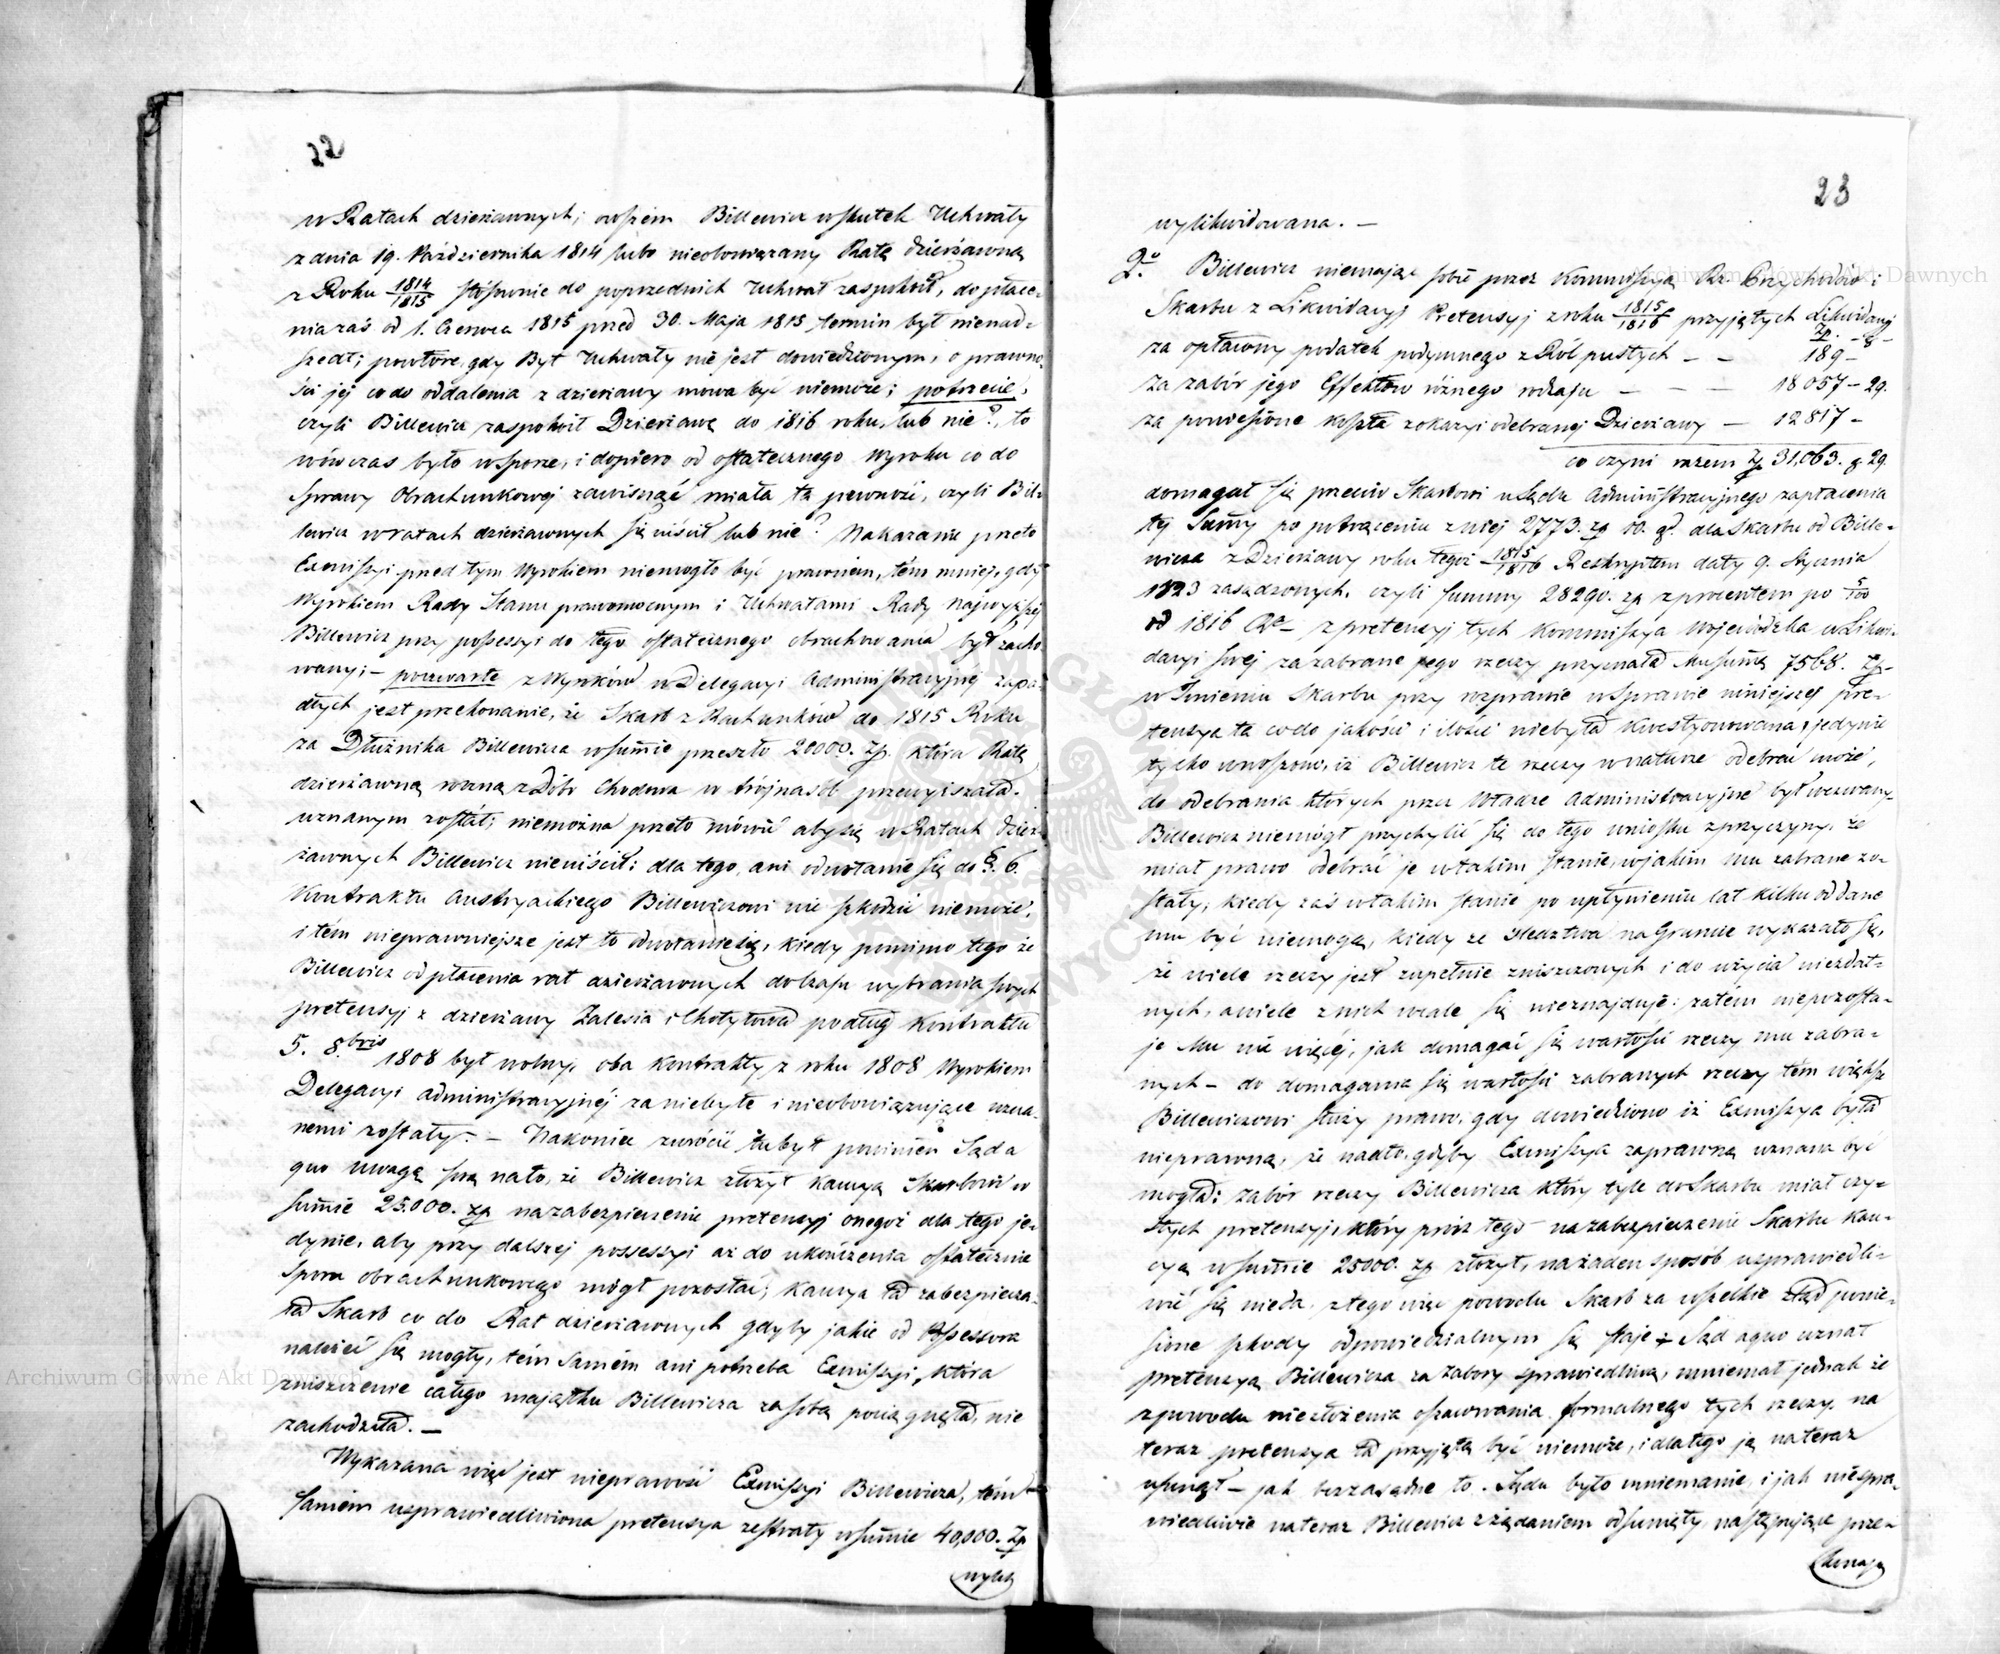 22
w Ratach dzierżawnych; owszem Billewicz wskutek Uchwały
z dnia 19. Października 1814 lubo nieobowiązany Ratę dzierżawną
z Roku 1814/1815 stosownie do poprzednich Uchwał zaspokoił, do płace-
nia zaś od 1. Czerwca 1815 przed 30. Maja 1815 termin był nienad-
szedł; powtóre, gdy Byt Uchwały nie jest dowiedzionym, o prawno-
ści jej co do oddalenia z dzierżawy mowa być niemoże; potrzecie,
czyli Billewicz zaspokoił Dzierżawę do 1816 roku, lub nie?, to
wówczas było w sporze, i dopiero od ostatecznego Wyroku co do
Sprawy Obrachunkowej zawisnąć miała ta pewność, czyli Bil-
lewicz w ratach dzierżawnych się uiścił lub nie? Nakazanie przeto
Exmissyi przed tym Wyrokiem niemogło być prawnem, tém mniej, gdy
Wyrokiem Rady Stanu prawomocnym i Uchwałami Rady Najwyższej
Billewicz przy possessyi do tego ostatecznego obrachowania był zacho-
wany; – poczwarte z Wyroków w Delegacyi Administracyjnéj zapa-
dłych jest przekonanie, że Skarb z Rachunków do 1815 Roku
za Dłużnika Billewicza w summie przeszło 20000. Zp. która Ratę
dzierżawną roczną z Dóbr Chodowa w trójnasób przewyższała.
uznanym został; niemożna przeto mówić aby się w Ratach dzier-
żawnych Billewicz nieuiścił: dla tego, ani odwołanie się do §. 6.
Kontraktu Austryackiego Billewiczowi nic szkodzić niemoże,
i tém nieprawniejsze jest to odwołanie się, kiedy pomimo tego że
Billewicz od płacenia rat dzierżawnych do czasu wybrania swych
pretensyj z dzierżawy Zalesia i Chotyłowa podług Kontraktu
5. 8.bris 1808 był wolny, oba Kontrakty z roku 1808 Wyrokiem
Delegacyi administracyjnéj za niebyłe i nieobowiązujące uzna-
nemi zostały. – Nakoniec zwrócić tu był powinien Sąd a
quo uwagę swą na to, że Billewicz złożył Kaucyą Skarbowi w
summie 25.000. zp na zabezpieczenie pretensyj onegoż dla tego je-
dynie, aby przy dalszej possessyi aż do ukończenia ostatecznie
Sporu obrachunkowego mógł pozostać; Kaucya ta zabezpiecza-
ła Skarb co do Rat dzierżawnych gdyby jakie od Possessora
należeć się mogły, tém samém ani potrzeba Exmissyi, która
zniszczenie całego majątku Billewicza za sobą pociągnęła, nie
zachodziła. –
Wykazana więc jest nieprawność Exmissyi Billewicza, tém
samém usprawiedliwiona pretensya ze straty w summie 40,000. Zp
wyli
23
wylikwidowana. –
2.° Billewicz niemając sobie przez Kommissyą Rz. Przychodów i
Skarbu z Likwidacyj Pretensyj z roku 1815/1816 przyjętych Likwidacyj
Zp. – g –
za opłacony podatek podymnego z Ról pustych – – 189 –
za zabór jego Effektów różnego rodzaju – – – 18 057 – 29.
za poniesione koszta z okazyi odebranej Dzierżawy – 12 817 –
co czyni razem Zp 31,063. g 29.
domagał się przeciw Skarbowi u Sądu Administracyjnego zapłacenia
téj Summy po potrąceniu z niej 2773. zp 10. gr. dla Skarbu od Bille-
wicza z Dzierżawy roku tegoż 1815/1816 Reskryptem daty 9. Stycznia
1823 zasądzonych, czyli summy 28290. zp z procentem po 5/100
od 1816 – z pretensyj tych Kommissya Wojewódzka w Likwi-
dacyi swej za zabrane jego rzeczy przyznała Mu summę 7568. Zp –
w Imieniu Skarbu przy rozprawie w Sprawie niniejszej pre-
tensya ta co do jakości i ilości niebyła Kwestyonowana, jedynie
tylko wnoszono, iż Billewicz te rzeczy w naturze odebrać może,
do odebrania których przez Władze Administracyjne był wezwany.
Billewicz niemógł przychylić się do tego wniosku z przyczyny, że
miał prawo odebrać je w takim stanie, w jakim mu zabrane zo-
stały, kiedy zaś w takim stanie po upłynieniu lat kilku oddane
mu być niemogą, kiedy ze śledztwa na Gruncie wykazało się,
że wiele rzeczy jest zupełnie zniszczonych i do użycia niezdat-
nych, a wiele z nich wcale się nieznajduje: zatém niepozosta-
je Mu nic więcéj, jak domagać się wartości rzeczy mu zabra-
nych – do domagania się wartości zabranych rzeczy tém większe
Billewiczowi służy prawo, gdy dowiedziono iż Exmissya była
nieprawną, że nadto, gdyby Exmissya za prawną uznana być
mogła; zabór rzeczy Billewicza który tyle do Skarbu miał czy-
stych pretensyj, który prócz tego na zabezpieczenie Skarbu Kau-
cyą w summie 25000. zp złożył, na żaden sposób usprawiedli-
wić się nieda, z tego więc powodu Skarb za wszelkie ztąd ponie-
sione szkody odpowiedzialnym się staje – Sąd a quo uznał
pretensyą Billewicza za zabory sprawiedliwą, mniemał jednak że
z powodu niezłożenia oszacowania formalnego tych rzeczy, na
teraz pretensya ta przyjętą być niemoże, i dlatego ją na teraz
usunął – jak bezzasadne to Sądu było mniemanie, i jak niespra-
wiedliwie na teraz Billewicz z żądaniem odsunięty, następujące prze-
konają